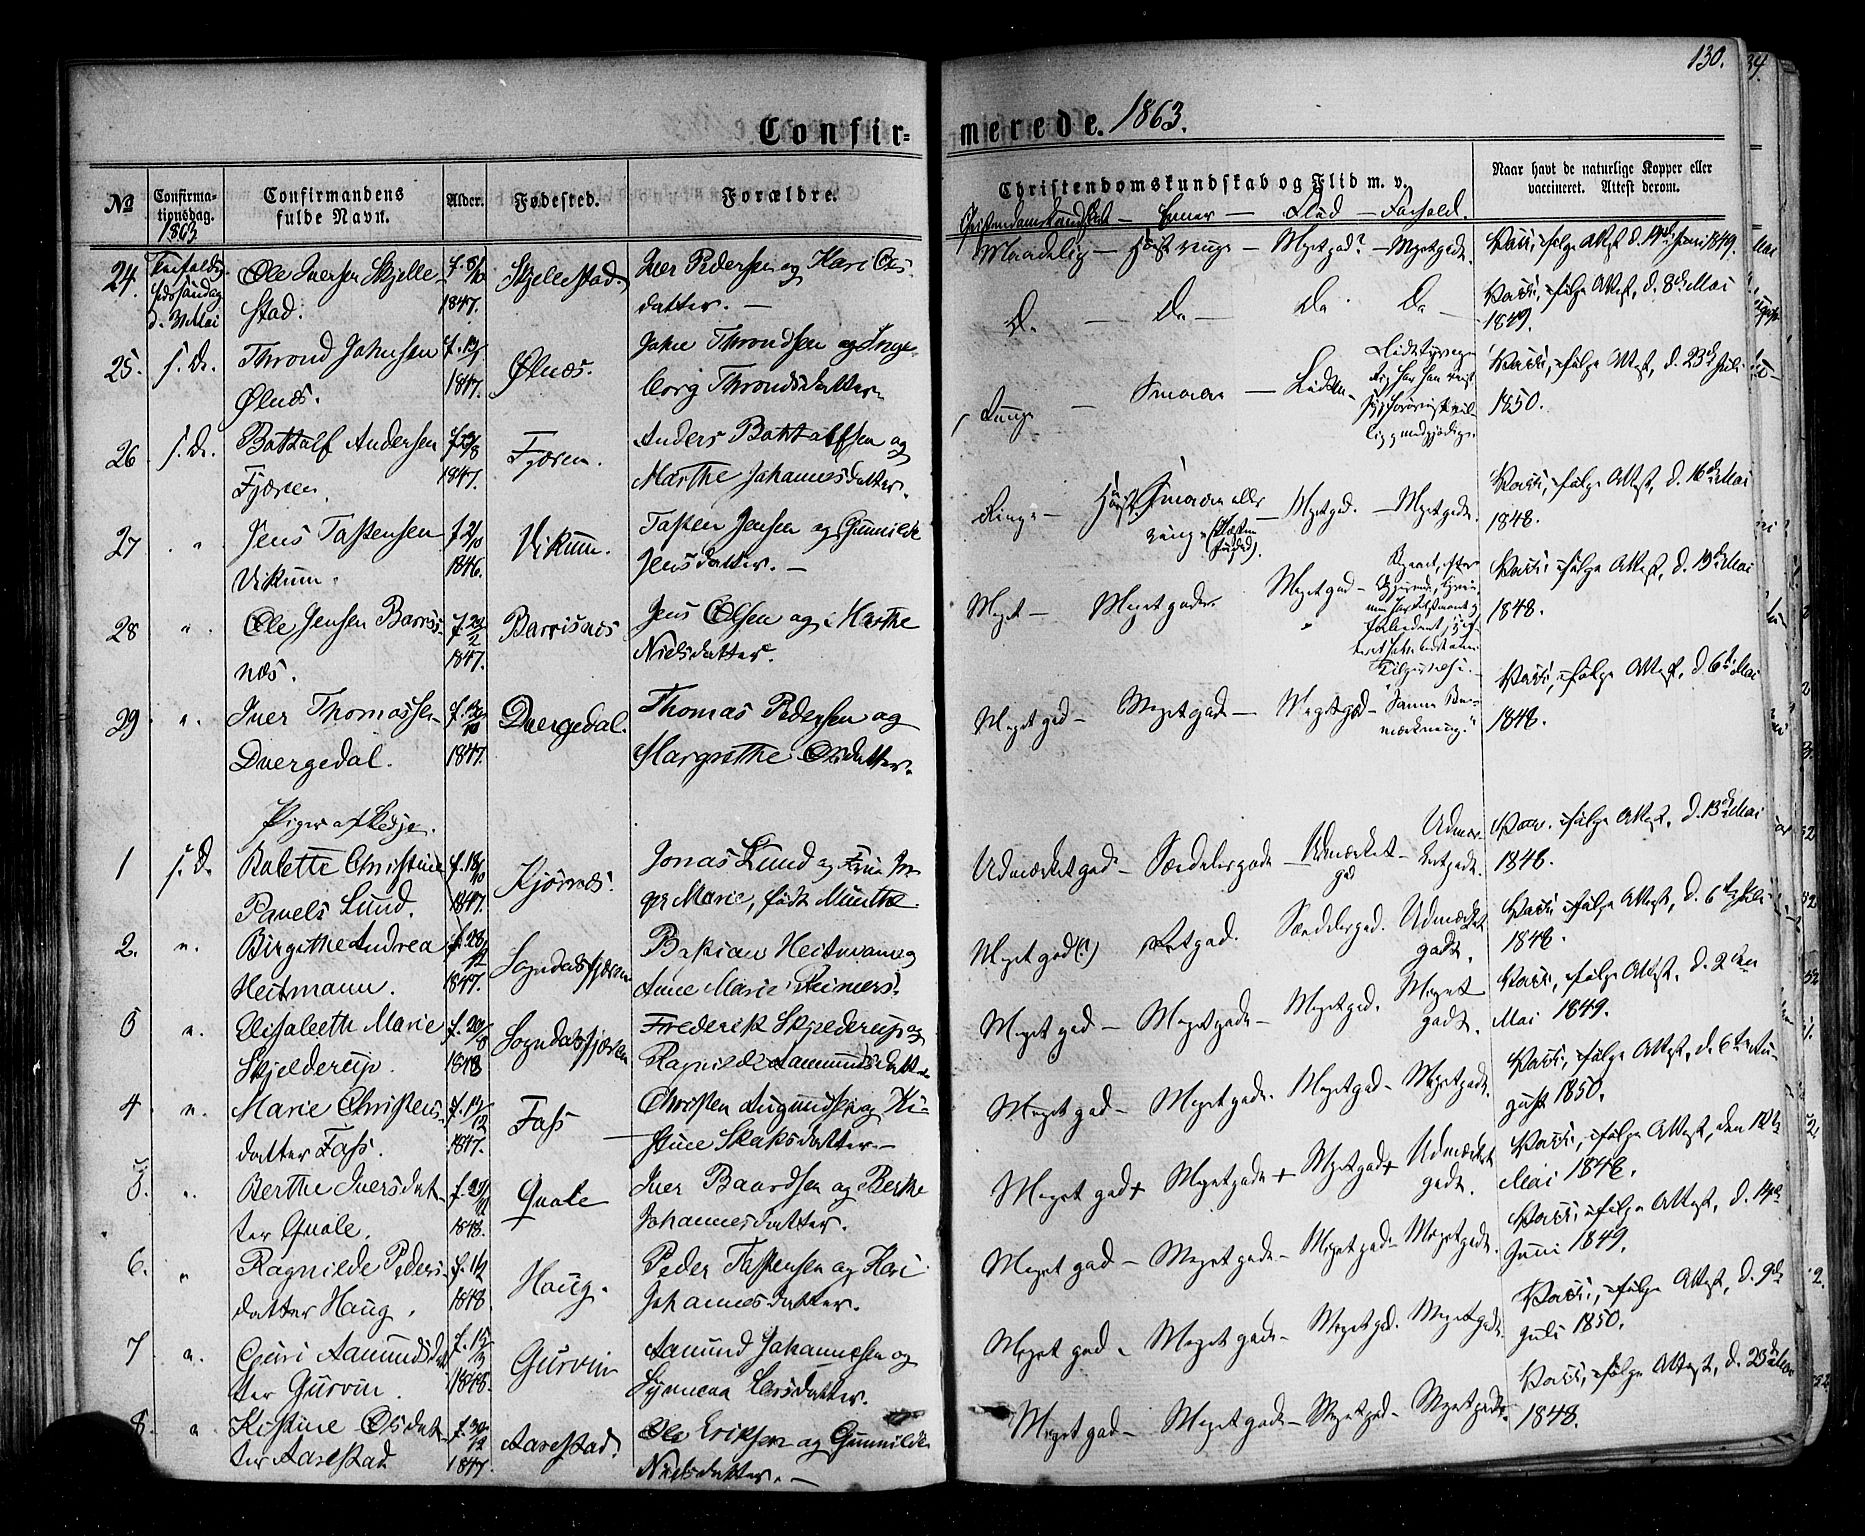 130.
Confir-
merede. 1863.
No
Confirma-
tionsdag.
1863
Confirmandens
fulde Navn.
Alder.
Fødested.
Forældre.
Christendomskundskab og Flid m. v.
Naar havt de naturlige Kopper eller
vaccineret. Attest derom.
Christendomskundskab — Evner — Flid — Forhold.
24.
d. 3 Mai
Ole Iversen Skjelle-
stad.
1847.
Skjellestad.
Iver Pedersen og Kari Ols-
datter. —
Maadelig — — Meget god? — Meget godt.
Vacc. ifølge Attest d. 19de Juni 1849.
25. s. D.
Thrond Johnsen
Ølnæs.
1847.
Ølnæs.
John Throndsen og Inge-
borg Throndsdatter.
Do — Do — Do Do —
Vacc., ifølge Attest, d. 8de Mai
1849.
26 s. D.
Bottolf Andersen
Fjæren.
1847.
Fjæren.
Anders Bottolfsen og
Marthe Johannesdatter.
Vacc., ifølge Attest, d. 23de Juli
1850.
27 "
Jens Tostensen
Vikum.
1846.
Vikum.
Tosten Jensen og Gunnilde
Jensdatter. —
Ringe — Meget god. — Meget godt.
Vacc., ifølge Attest, d. 16de Mai
1848.
28 "
Ole Jensen Barris-
næs.
1847.
Barrisnes
Jens Olsen og Marthe
Nielsdatter.
Meget — Meget gode. Meget god —
Vacc., ifølge Attest, d. 13de Mai
1848.
29. "
Iver Thomassen
Dvergedal.
1847.
Dvergedal.
Thomas Pedersen og
Margrethe Olsdatter.
Meget god — Meget gode — Meget god — Samme Be-
mærkning.
Vacc., ifølge Attest, d. 6te Mai
1848.
Piger af
1 s. D.
Bolette Christine
Pavels Lund.
f. 18/10
1847.
Kjørnæs.
Jonas Lund og Frue In-
ger Marie, født Münthe.
Udmærket god — Særdeles gode — Udmærket
god — Udmær-
ket godt.
Vacc. ifølge Attest, d. 13de Mai
1848.
2. "
Birgithe Andrea
Heitmann.
1847.
Sogndalsfjæren
Bastian Heitmann og
Anne Marie Reimers.
Meget god(?) Ret god. Særdeles god. Udmærket
godt.
Vacc. ifølge Attest, d. 6te Juli
1848.
3 "
Elisabeth Marie
Skjelderup.
f. 20/8
1848
Sogndalsfjæren
Frederik Skjelderup og
Ragnilde Aamundsdatter
Meget god — Meget gode — Meget god. Meget
godt.
Vacc., ifølge Attest, d. 2den
Mai 1849.
4 "
Marie Christens-
datter Fass.
1847.
Fass
Christen Augundsen og Ki-
stine Skaksdatter. —
Meget god — Meget gode. Meget god — Meget godt.
Vacc., ifølge Attest, d. 6te Au-
gust 1850.
5. "
Berthe Iversdat-
ter Qvale.
1848.
Qvale
Iver Baardsen og Berthe
Johannesdatter.
Meget god + Meget gode + Meget god + Udmærket
godt.
Vacc., ifølge Attest, den 12te
Mai 1848.
6. "
Ragnilde Peders-
datter Haug.
1848.
Haug.
Peder Tostensen og Kari
Johannesdatter.
Meget god — Meget gode — Meget god — Meget godt.
Vacc. ifølge Attest, d. 14de
Juni 1849.
7 "
Guri Aamundsdat-
ter Gurvin.
f. 15/3
1848.
Gurvin
Aamund Johannessen og
Synneva Larsdatter.
Meget god — Meget gode — Meget god. Meget godt.
Vacc., ifølge Attest, d. 9de
Juli 1850.
8. "
Kistine Olsdat-
ter Aarestad
f. 30/12
1847.
Aarestad.
Ole Eriksen og Gunnilde
Nielsdatter. —
Meget god — Meget gode — Meget god — Meget godt.
Vacc., ifølge Attest, d. 23de Mai
1848.